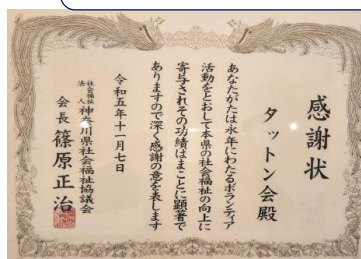 感謝状
タットン会殿
あなたがたは永年にわたるボランティア
活動をとおして本県の社会福祉の向上に
寄与されその功績はまことに顕著で
ありますので深く感謝の意を表します
令和五年十一月七日
社会福祉法人神奈川県社会福祉協議会
会長 篠原正治